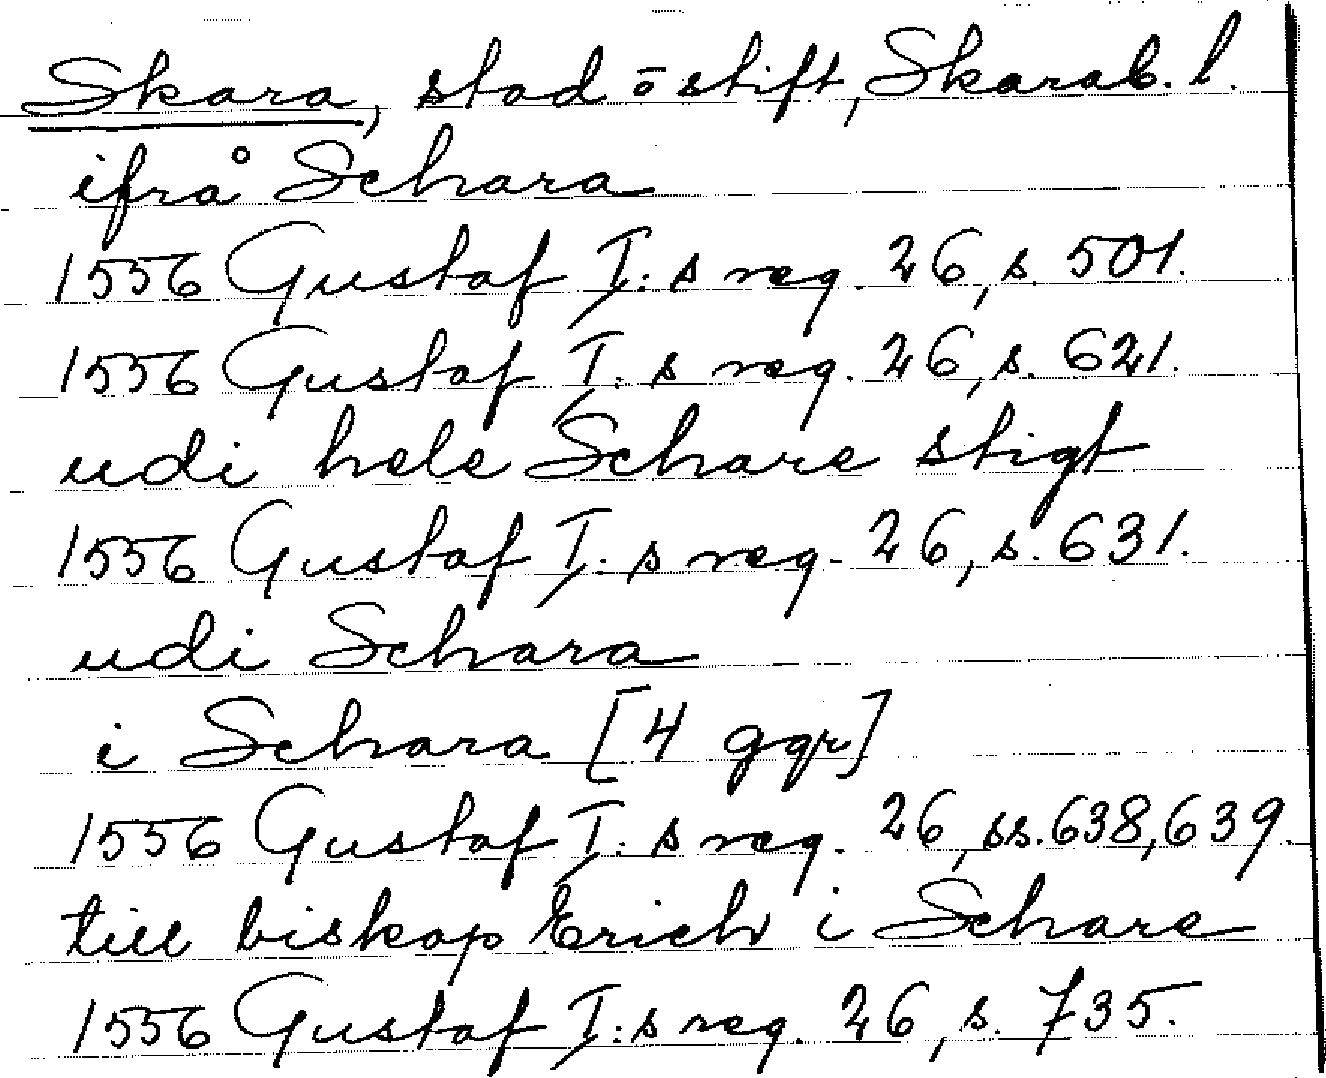 Skara, stad o stift, Skarab. l.
ifrå Schara
1556 Gustaf I:s reg. 26, s. 501.
1556 Gustaf I:s reg. 26, s. 621.
udi hele Schare stigt
1556 Gustaf I:s reg. 26, s. 631.
udi Schara
i Schara [4 ggr]
1556 Gustaf I:s reg. 26, ss. 638, 639.
till biskop Erich i Schare
1556 Gustaf I:s reg. 26, s. 735.